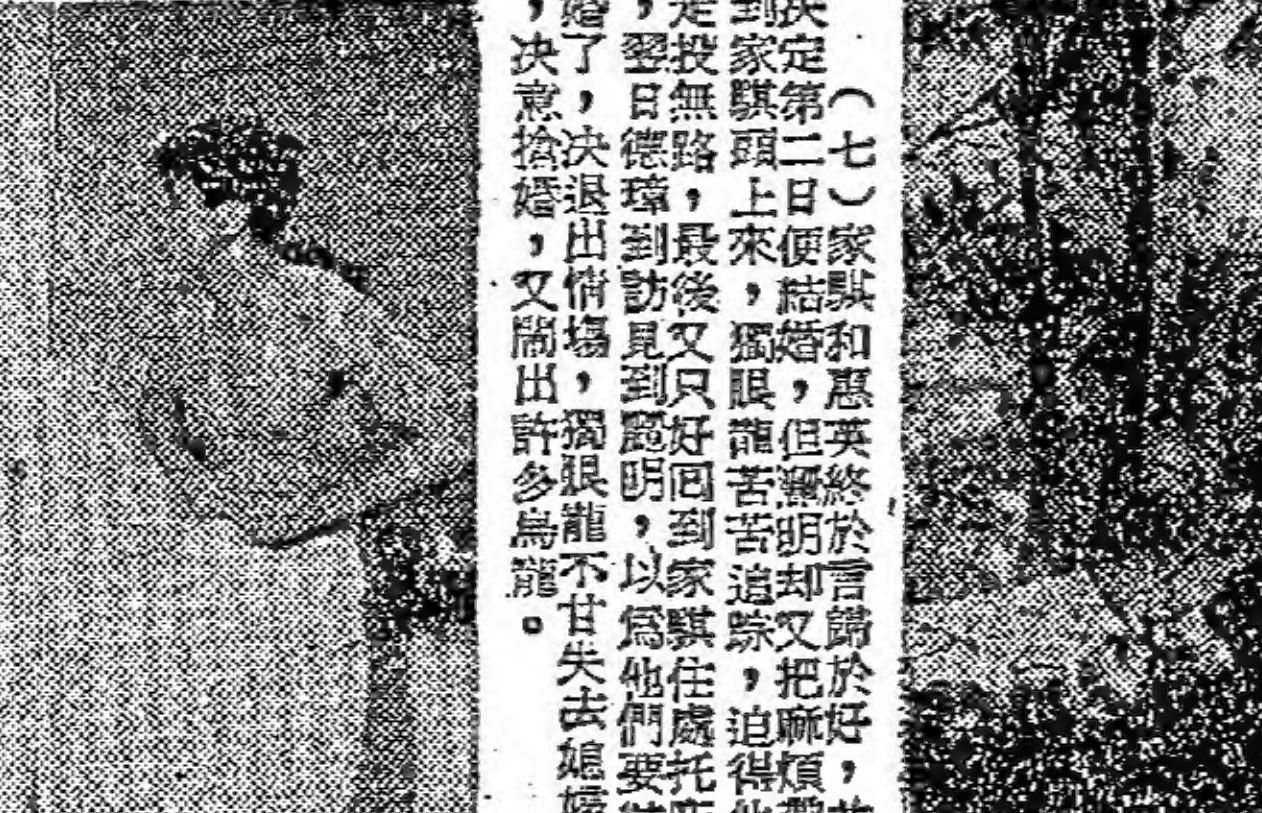 （七）家騏和惠英終於言歸於好，
决定第二日便結婚，但麗明却又把麻煩
到家騏頭上來，獨眼龍苦苦追踪，迫得
走投無路，最後又只好回到家騏住處托
，翌日德瑋到訪見到麗明，以爲他們要
婚了，决退出情塲，獨眼龍不甘失去媳
，决意搶婚，又鬧出許多烏龍。